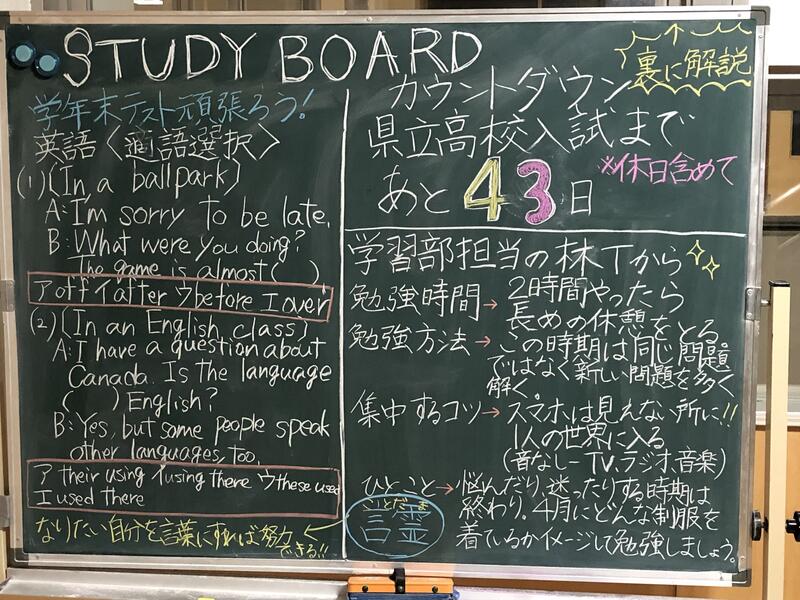 STUDY BOARD
↑
裏に解説
学年末テスト頑張ろう!
英語〈適語選択〉
(1)(In a ballpark)
A: I'm sorry to be late.
B: What were you doing?
The game is almost (  ).
ア off イ after ウ before エ over
(2)(In an English class)
A: I have a question about
Canada. Is the language
(  ) English?
B: Yes, but some people speak
other languages, too.
ア their using イ using there ウ these used
エ used there
なりたい自分を言葉にすれば努力
できる!!
カウントダウン
県立高校入試まで
あと43日
※休日含めて
学習部担当の林Tから
勉強時間→2時間やったら
長めの休憩をとる。
勉強方法→この時期は同じ問題
ではなく新しい問題を多く
解く。
集中するコツ→スマホは見えない所に!!
1人の世界に入る
(音なしーTV、ラジオ、音楽)
ひとこと→悩んだり、迷ったりする時期は
終わり。4月にどんな制服を
着ているかイメージして勉強しましょう。
ことだま
言霊